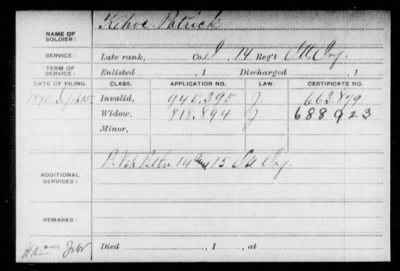 NAME OF SOLDIER: Kehoe Patrick
SERVICE: Late rank, Co. I, 14 Reg't Ill Inf.
TERM OF SERVICE: Enlisted , 1 Discharged , 1
DATE OF FILING. CLASS. APPLICATION NO. LAW. CERTIFICATE NO.
1890 Invalid, 945.395 J. 663.879
Widow, 818.894 J 688 923
Minor,
ADDITIONAL SERVICES: 14 and 15 Ill Inf.
REMARKS:
Died , 1 , at